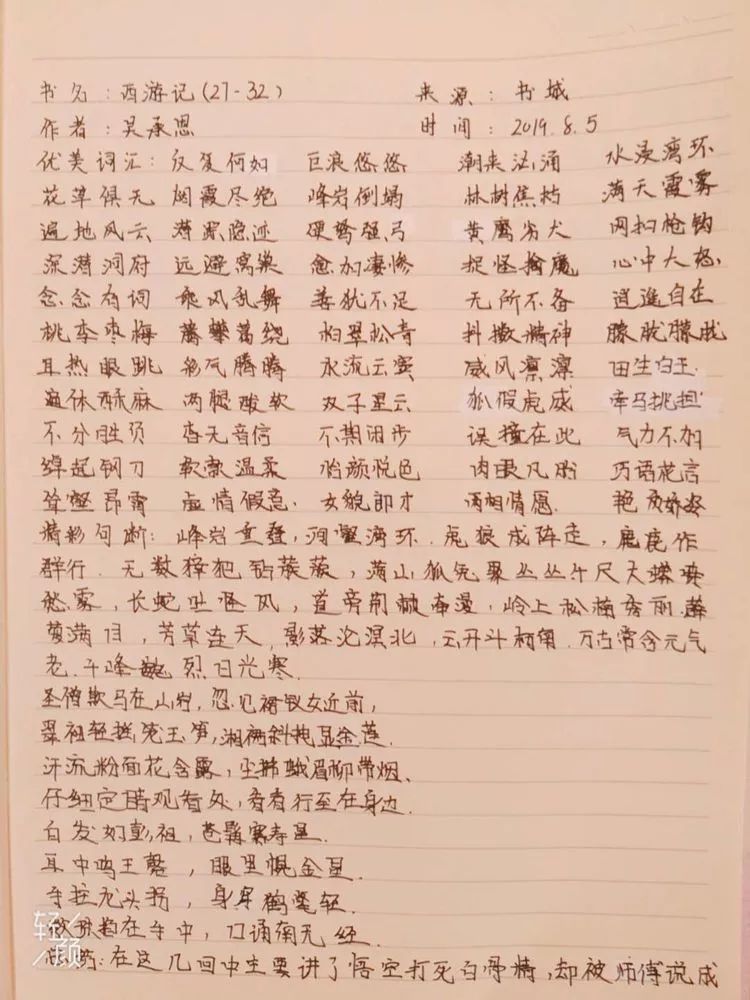 书名：西游记(27-32) 来源：书城
作者：吴承恩 时间：2019.8.5
优美词汇：反复何如 巨浪悠悠 潮来汹涌 水浸湾环
花草俱无 烟霞尽绝 峰岩倒塌 林树焦枯 满天霞雾
遍地风云 潜踪隐迹 硬弩强弓 黄鹰劣犬 网扣枪钩
深潜洞府 远避窝巢 愈加凄惨 捉怪擒魔 心中大怒
念念有词 乘风乱舞 善犹不足 无所不备 逍遥自在
桃李枣梅 藤攀葛绕 柏翠松青 抖擞精神 朦胧朦胧
耳热眼跳 彩气腾腾 水流云窦 威风凛凛 田生白玉
遍体酥麻 两腿酸软 双子星云 狐假虎威 牵马挑担
不分胜负 杳无音信 不期闲步 误撞在此 气力不加
绰起钢刀 软款温柔 怡颜悦色 肉眼凡胎 巧语花言
耸壑昂霄 虚情假意 女貌郎才 两相情愿 艳质娇姿
精彩句断：峰岩重叠，涧壑湾环．虎狼成阵走，麂鹿作
群行．无数獐豝钻簇簇，满山狐兔聚丛丛千尺大蟒喷
愁雾，长蛇吐怪风，道旁荆棘牵漫，岭上松楠秀丽．薜
萝满目，芳草连天，影落沧溟北，云开斗柄南．万古常含元气
老．千峰巍烈日光寒．
圣僧歇马在山岩，忽见裙钗女近前，
翠袖轻摇笼玉笋，湘裙斜拽显金莲．
汗流粉面花含露，尘拂蛾眉柳带烟、
仔细定睛观看处，看看行至在身边．
白发如彭祖，苍髯赛寿星．
耳中鸣玉磬，眼里幌金星．
手拄龙头拐，身穿鹤氅轻．
数珠掐在手中，口诵南无经．
：在这几回中主要讲了悟空打死白骨精，却被师傅说成
轻颜